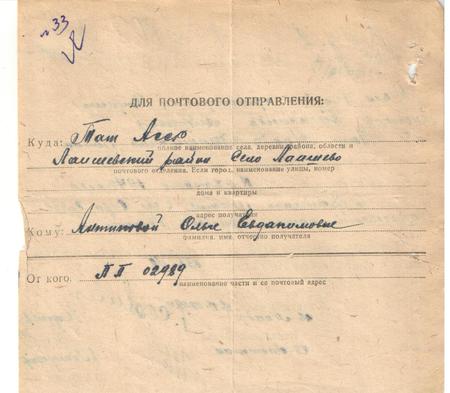 №33
ДЛЯ ПОЧТОВОГО ОТПРАВЛЕНИЯ:
Куда: Тат Асср
полное наименование села, деревни, района, области и
Лаишевский район Село Лаишево
почтового отделения. Если город, наименование улицы, номер
дома и квартиры
адрес получателя
Кому: Антиповой Ольге
фамилия, имя, отчество получателя
От кого. ПП 02989
наименование части и ее почтовый адрес